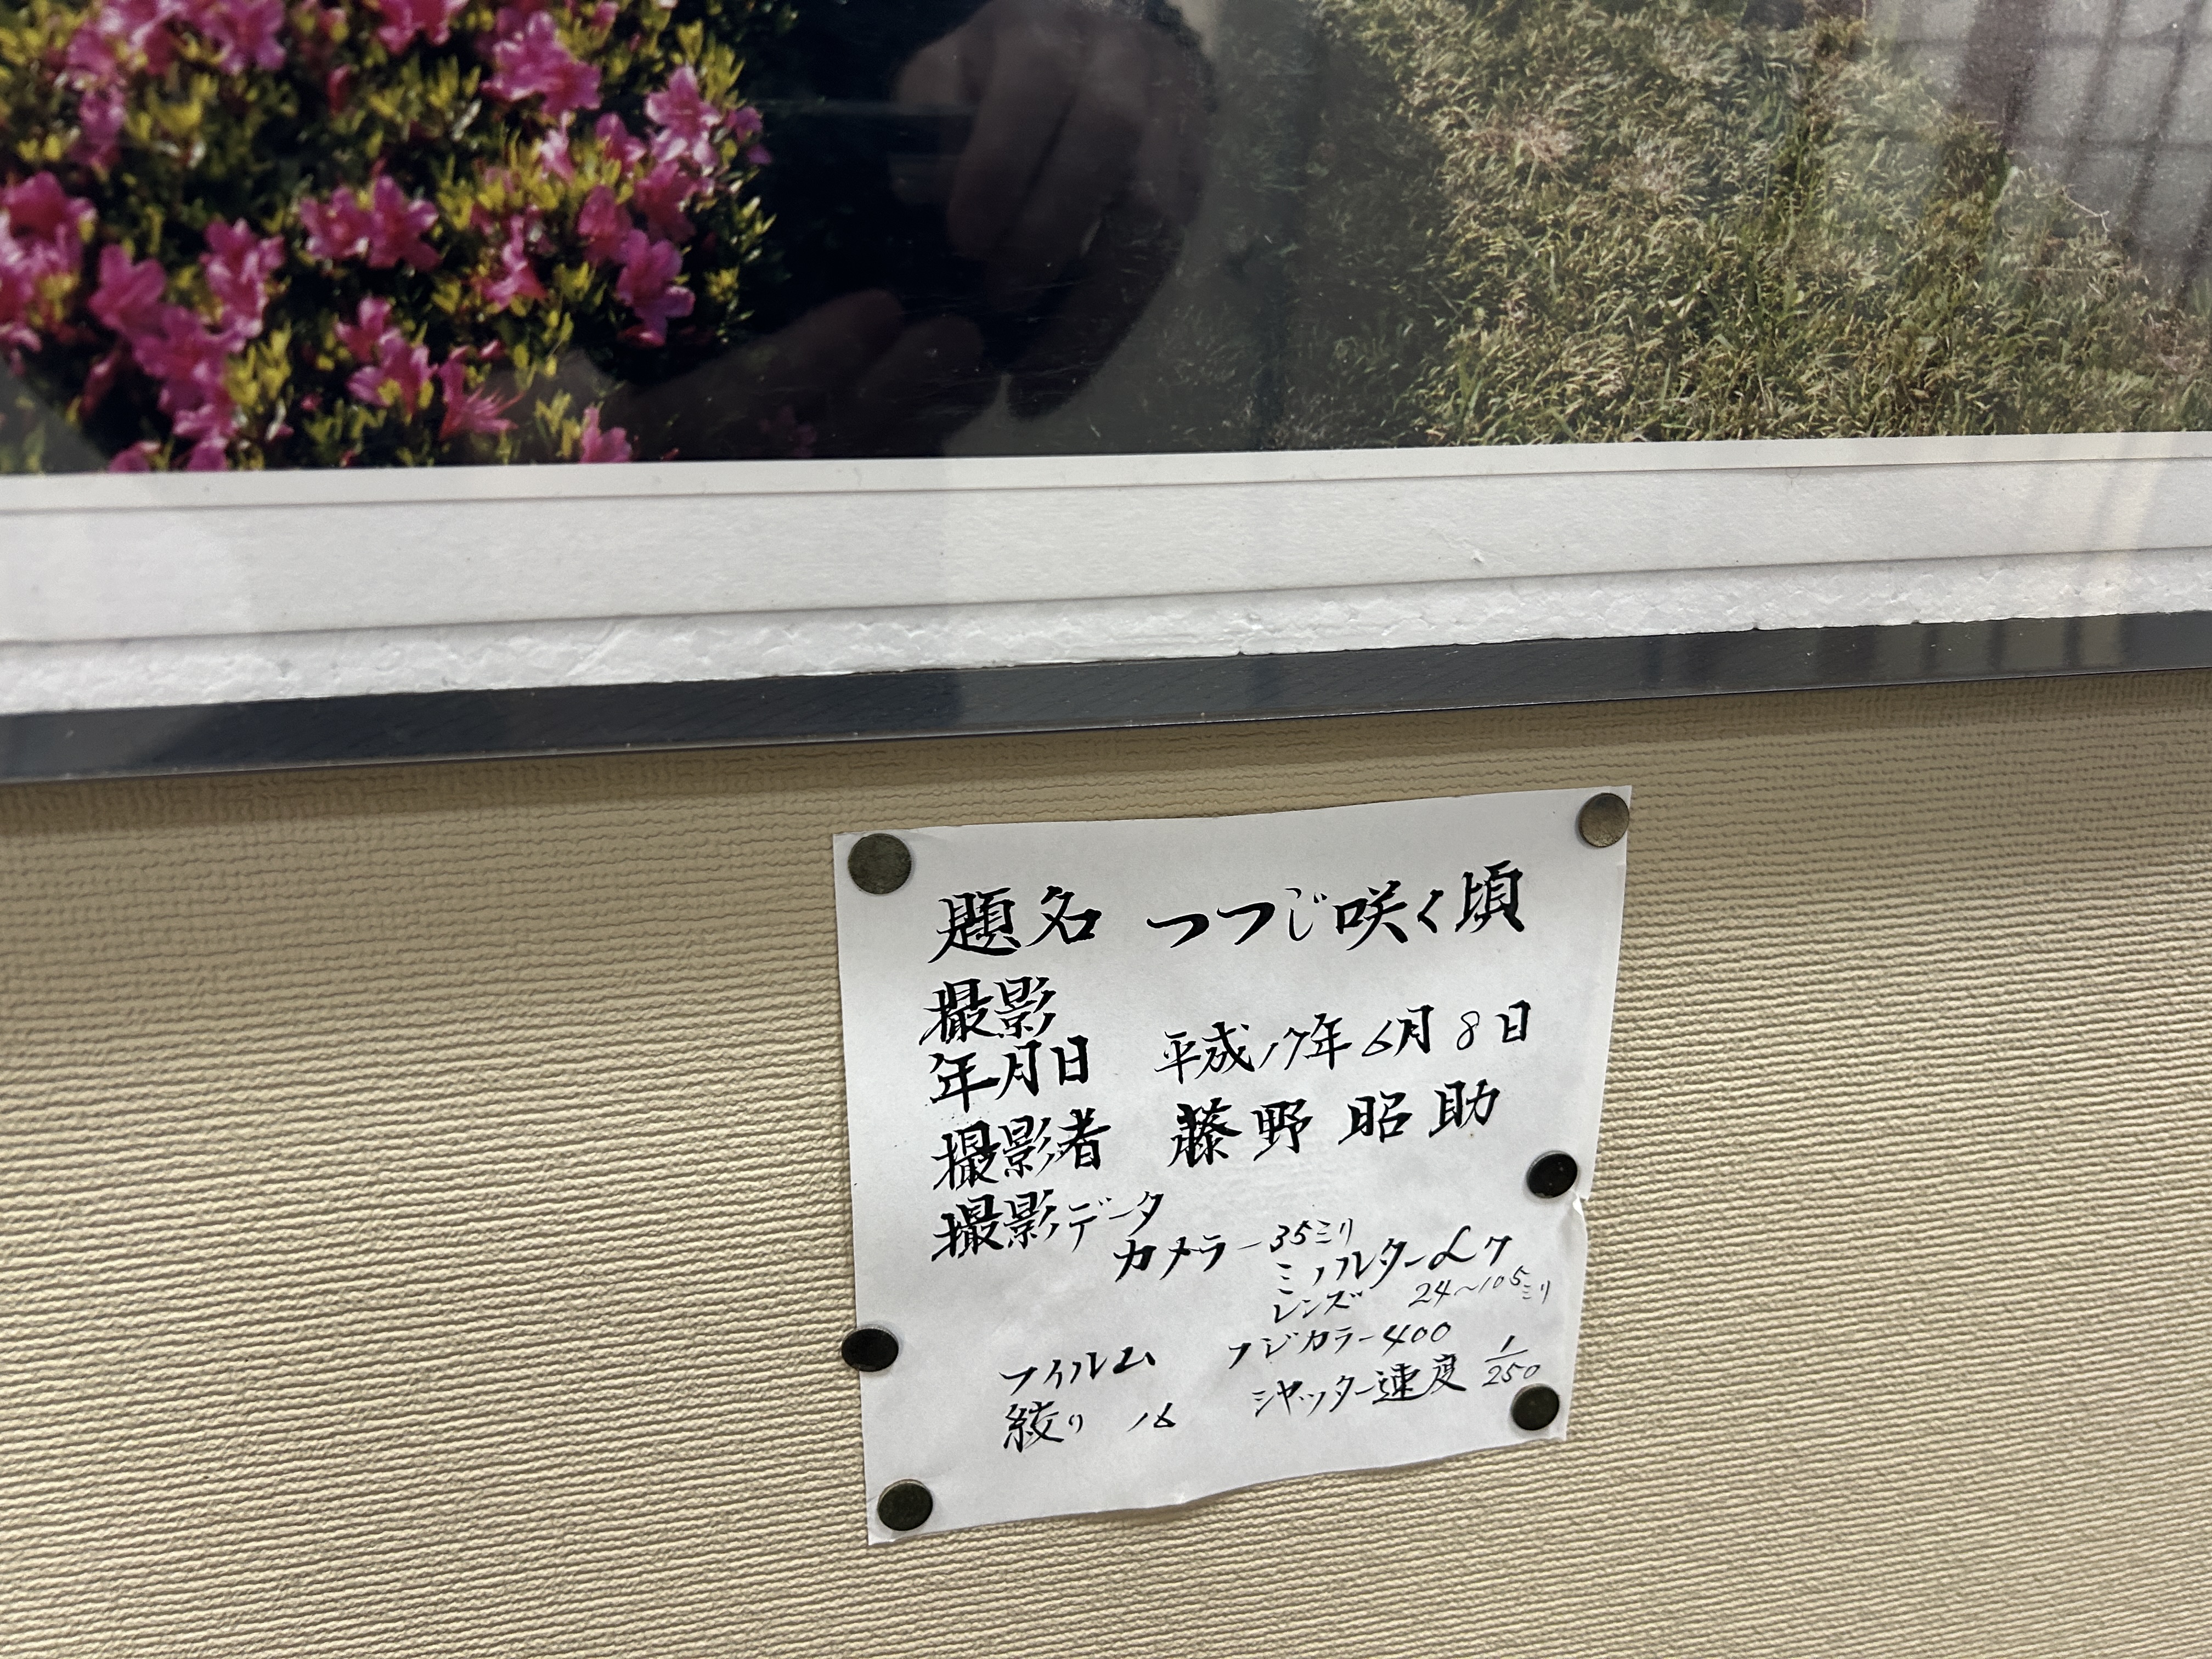 題名 つつじ咲く頃
撮影
年月日 平成17年6月8日
撮影者 藤野昭助
撮影データ
カメラー35ミリ
ミノルターα7
レンズ 24〜105ミリ
フイルム フジカラー400
絞り 16 シャッター速度 1/250